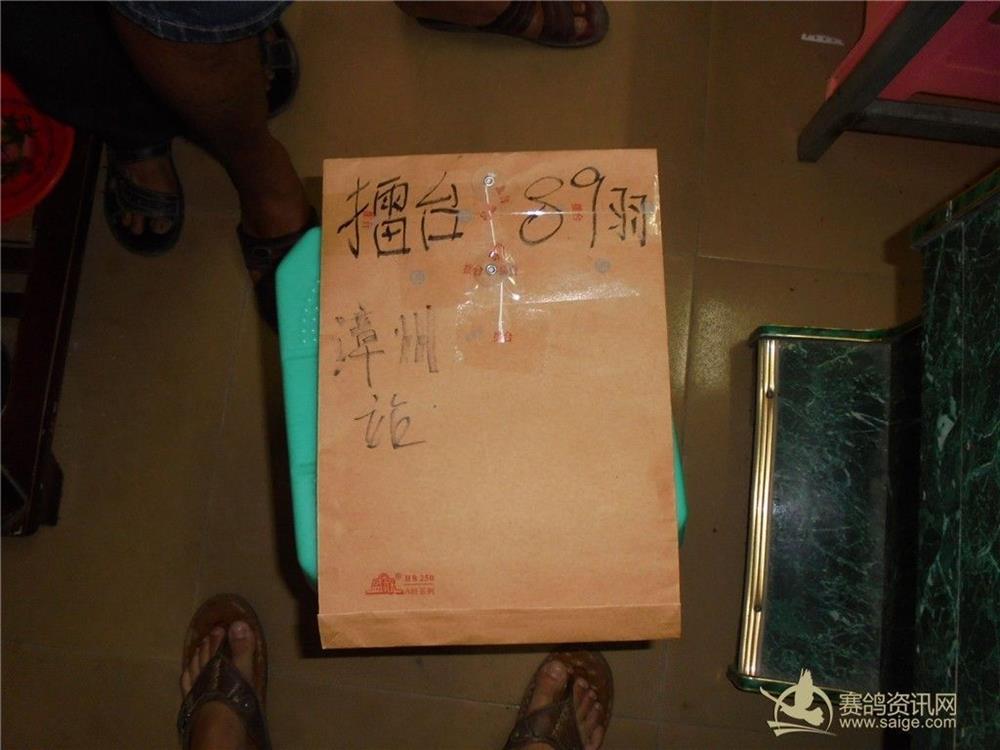 擂台 89羽
漳州
站
HB 250
A料系列
赛鸽资讯网
www.saige.com